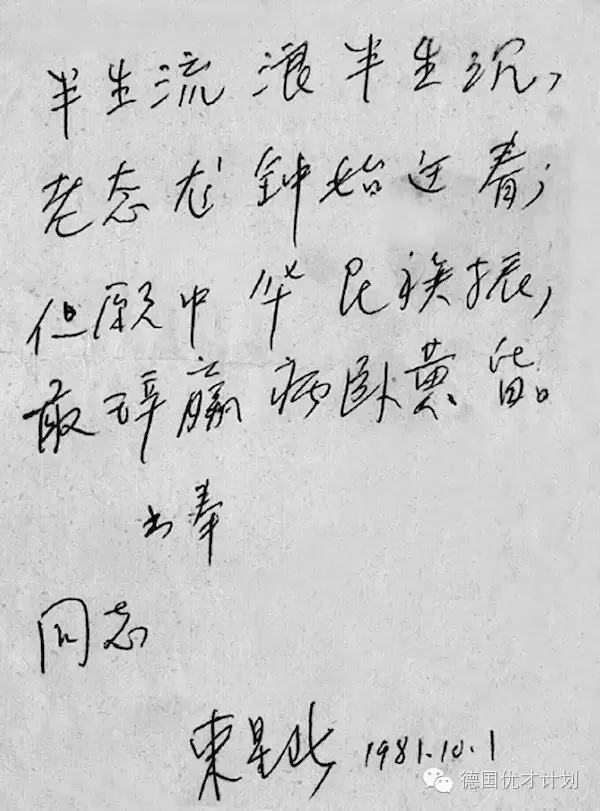 半生流浪半生沉，
老态龙钟始迂春；
但愿中华民族振，
敢辞羸病卧黄昏。
书奉
同志
束星北 1981.10.1
德国优才计划